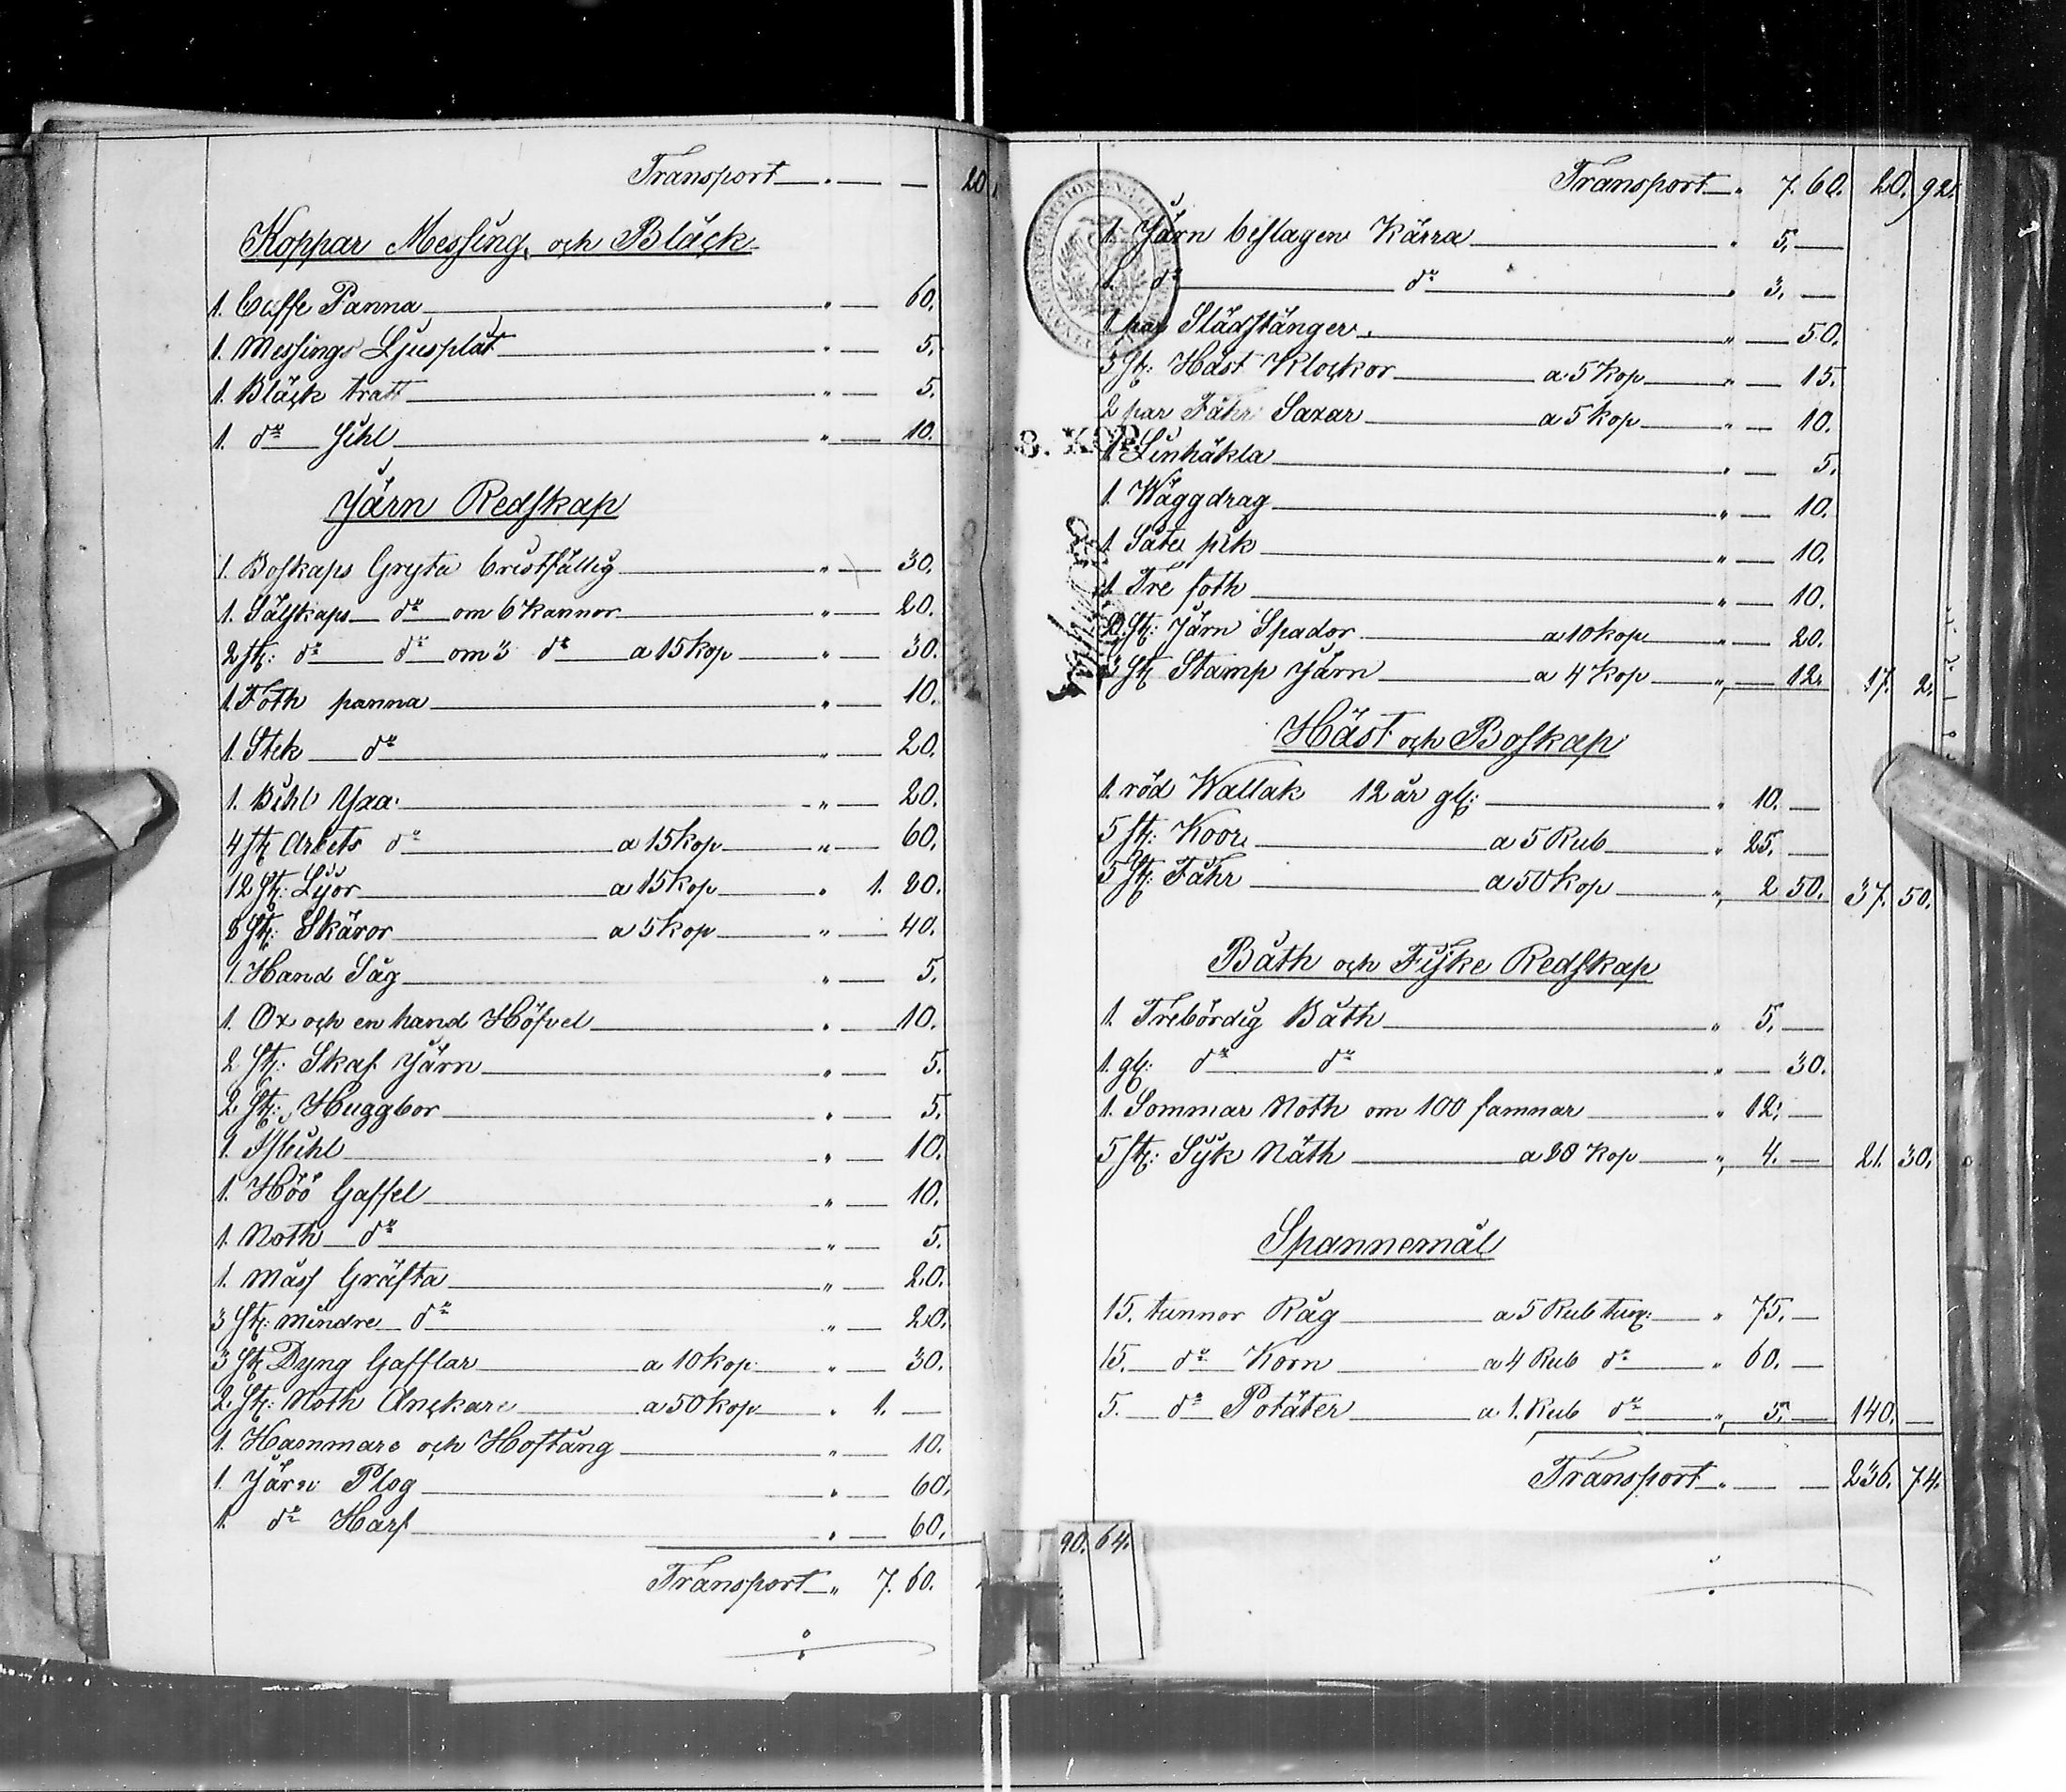 Transport — " — — 20
Koppar Messing och Bläck
1. Caffe Panna " — 60.
1. Messings Ljusplåt " — 5.
1. Bläck tratt " — 5.
1. d:o Sihl " — 10.
Järn Redskap
1. Boskaps Gryta bristfällig " — 30.
1. Sälskaps d:o om 6 kannor " — 20.
2 st: d:o d:o om 3 d:o a 15 kop " — 30.
1. Foth panna " — 10.
1. Stek d:o " — 20.
1. Bihl Yxa " — 20.
4 st Arbets d:o a 15 kop " — 60.
12 st: Lijor a 15 kop " 1. 80.
8 st: Skäror a 5 kop " — 40.
1. Hand Såg " — 5.
1. Ox och en hand Höfvel " — 10.
2 st: Skaf Järn " — 5.
2 st: Huggbor " — 5.
1. " — 10.
1. Höö Gaffel " — 10.
1. Noth d:o " — 5.
1. Gräfta " — 20.
3 st: mindre d:o " — 20.
3 st Dyng Gafflar a 10 kop " — 30.
2 st: Noth Anckare a 50 kop " 1. —
1. Hammare och Hoftång " — 10.
1. Järn Plog " — 60.
1. d:o Harf " — 60.
Transport " 7. 60.
Transport " 7. 60. 20. 92.
1. Järn beslagen Kärra " 5. —
1. d:o d:o " 3. —
1 par Slädstänger " — 50.
3 st: Häst Klockor a 5 kop " — 15.
2 par Fåhr Saxar a 5 kop " — 10.
8. KOP.
1. Linhäkla " — 5.
1. Wäggdrag " — 10.
1. pik " — 10.
1. Tre foth " — 10.
2 st: Järn Spador a 10 kop " — 20.
3 st Stamp Järn a 4 kop " — 12. 17. 2.
Häst och Boskap
1. röd Wallak 12 år gl: " 10. —
5 st: Koor a 5 Rub " 25. —
5 st: Fåhr a 50 kop " 2 50. 37. 50.
Båth och Fiske Redskap
1. Trebördig Båth " 5. —
1. gl: d:o d:o " — 30.
1. Sommar Noth om 100 famnar " 12. —
5 st: Sijk Näth a 80 kop " 4. — 21. 30.
Spannemål
15. tunnor Råg a 5 Rub tun: " 75. —
15. d:o Korn a 4 Rub d:o " 60. —
5. d:o Potäter a 1. Rub d:o " 5. — 140. —
Transport " — — 236. 74.
90. 64.